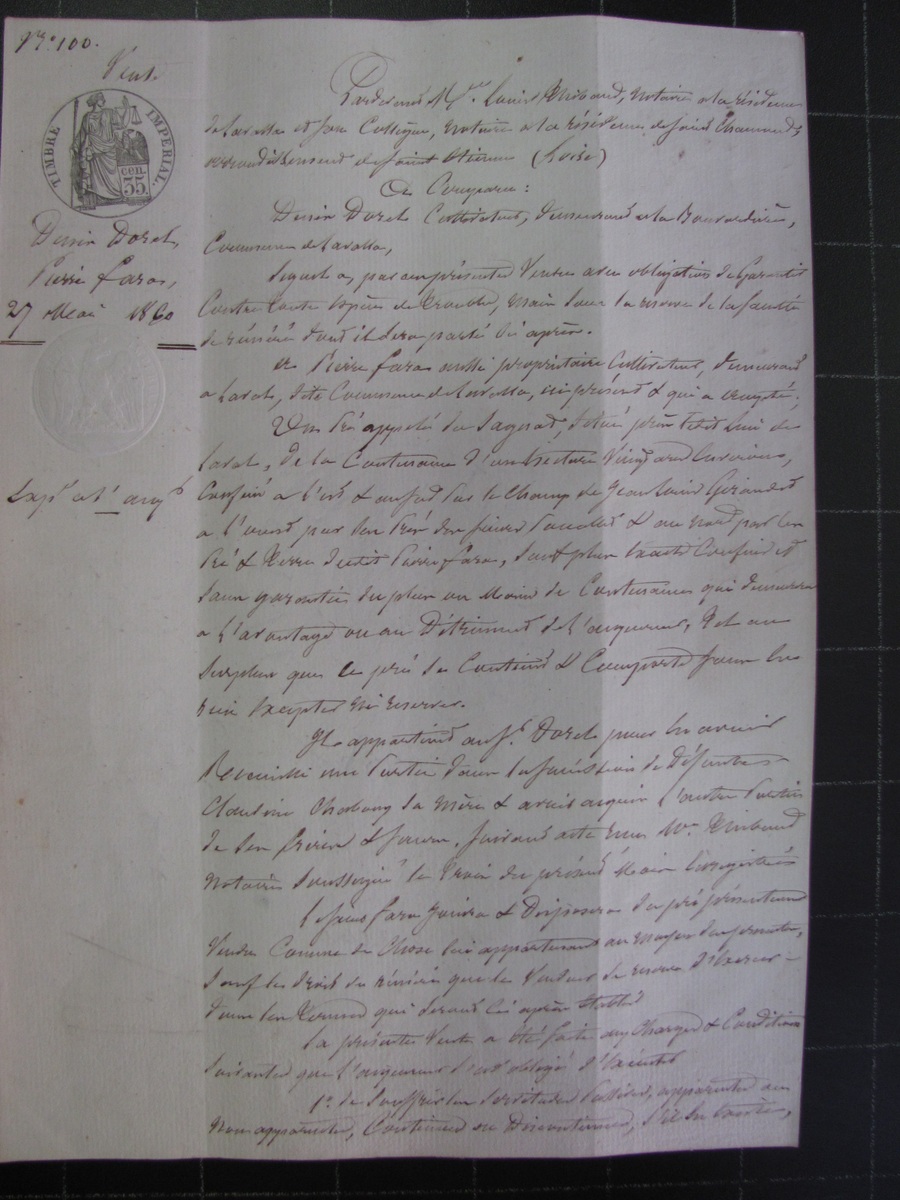 N.° 100.
Vente
TIMBRE IMPERIAL.
35 cen.
Denis Dorel,
Pierre Fara,
27 Mai 1860
Pardevant M.es Louis Thibaud, Notaire à la résidence
de Lavalla et son Collègue, Notaire à la résidence de Saint Chamond,
arrondissement de Saint Etienne (Loire)
A Comparu:
Denis Dorel Cultivateur, demeurant à la
Commune de Lavalla,
Lequel a, par ces présentes Vendu avec obligation de Garantir
Contre toute espèce de trouble, mais sous la réserve de la faculté
de réméré dont il sera parlé ci après.
à Pierre Fara aussi propriétaire Cultivateur, demeurant
à Laval, dite Commune de Lavalla, ici présent & qui a accepté;
Un Pré appelé du Sagnat, situé près dudit lieu de
Laval, de la Contenance d'un hectare Vingt ares environ,
Confiné à l'est & au sud par le Champ de Jean Louis
à l'ouest par un Pré du sieur & au nord par un
Pré & Terre dudit Pierre Fara, sauf plus exacts Confins et
sans garantie du plus ou Moins de Contenance qui demeurera
à l'avantage ou au Détriment de l'acquéreur, Tel au
surplus que ce pré se Contient & Comporte sans en
rien excepter ni réserver.
Il appartient au s.r Dorel pour en avoir
Recueilli une Partie dans la succession de Défunte
Claudine sa Mère & avoir acquis l'autre Partie
de ses frères & soeurs, suivant acte reçu M.e Thibaud
Notaire Soussigné le Trois du présent Mois enregistré
Le sieur Fara jouira & Disposera du pré présentement
Vendu Comme de Chose lui appartenant au moyen des présentes,
sauf le droit de réméré que le Vendeur se réserve d'exercer
dans les Termes qui seront ci après établis
La présente Vente a été faite aux Charges & Conditions
suivantes que l'acquéreur s'est obligé d'exécuter
1.° de Souffrir les Servitudes Passives, apparentes ou
Non apparentes, Continues ou Discontinues, s'il en existe,